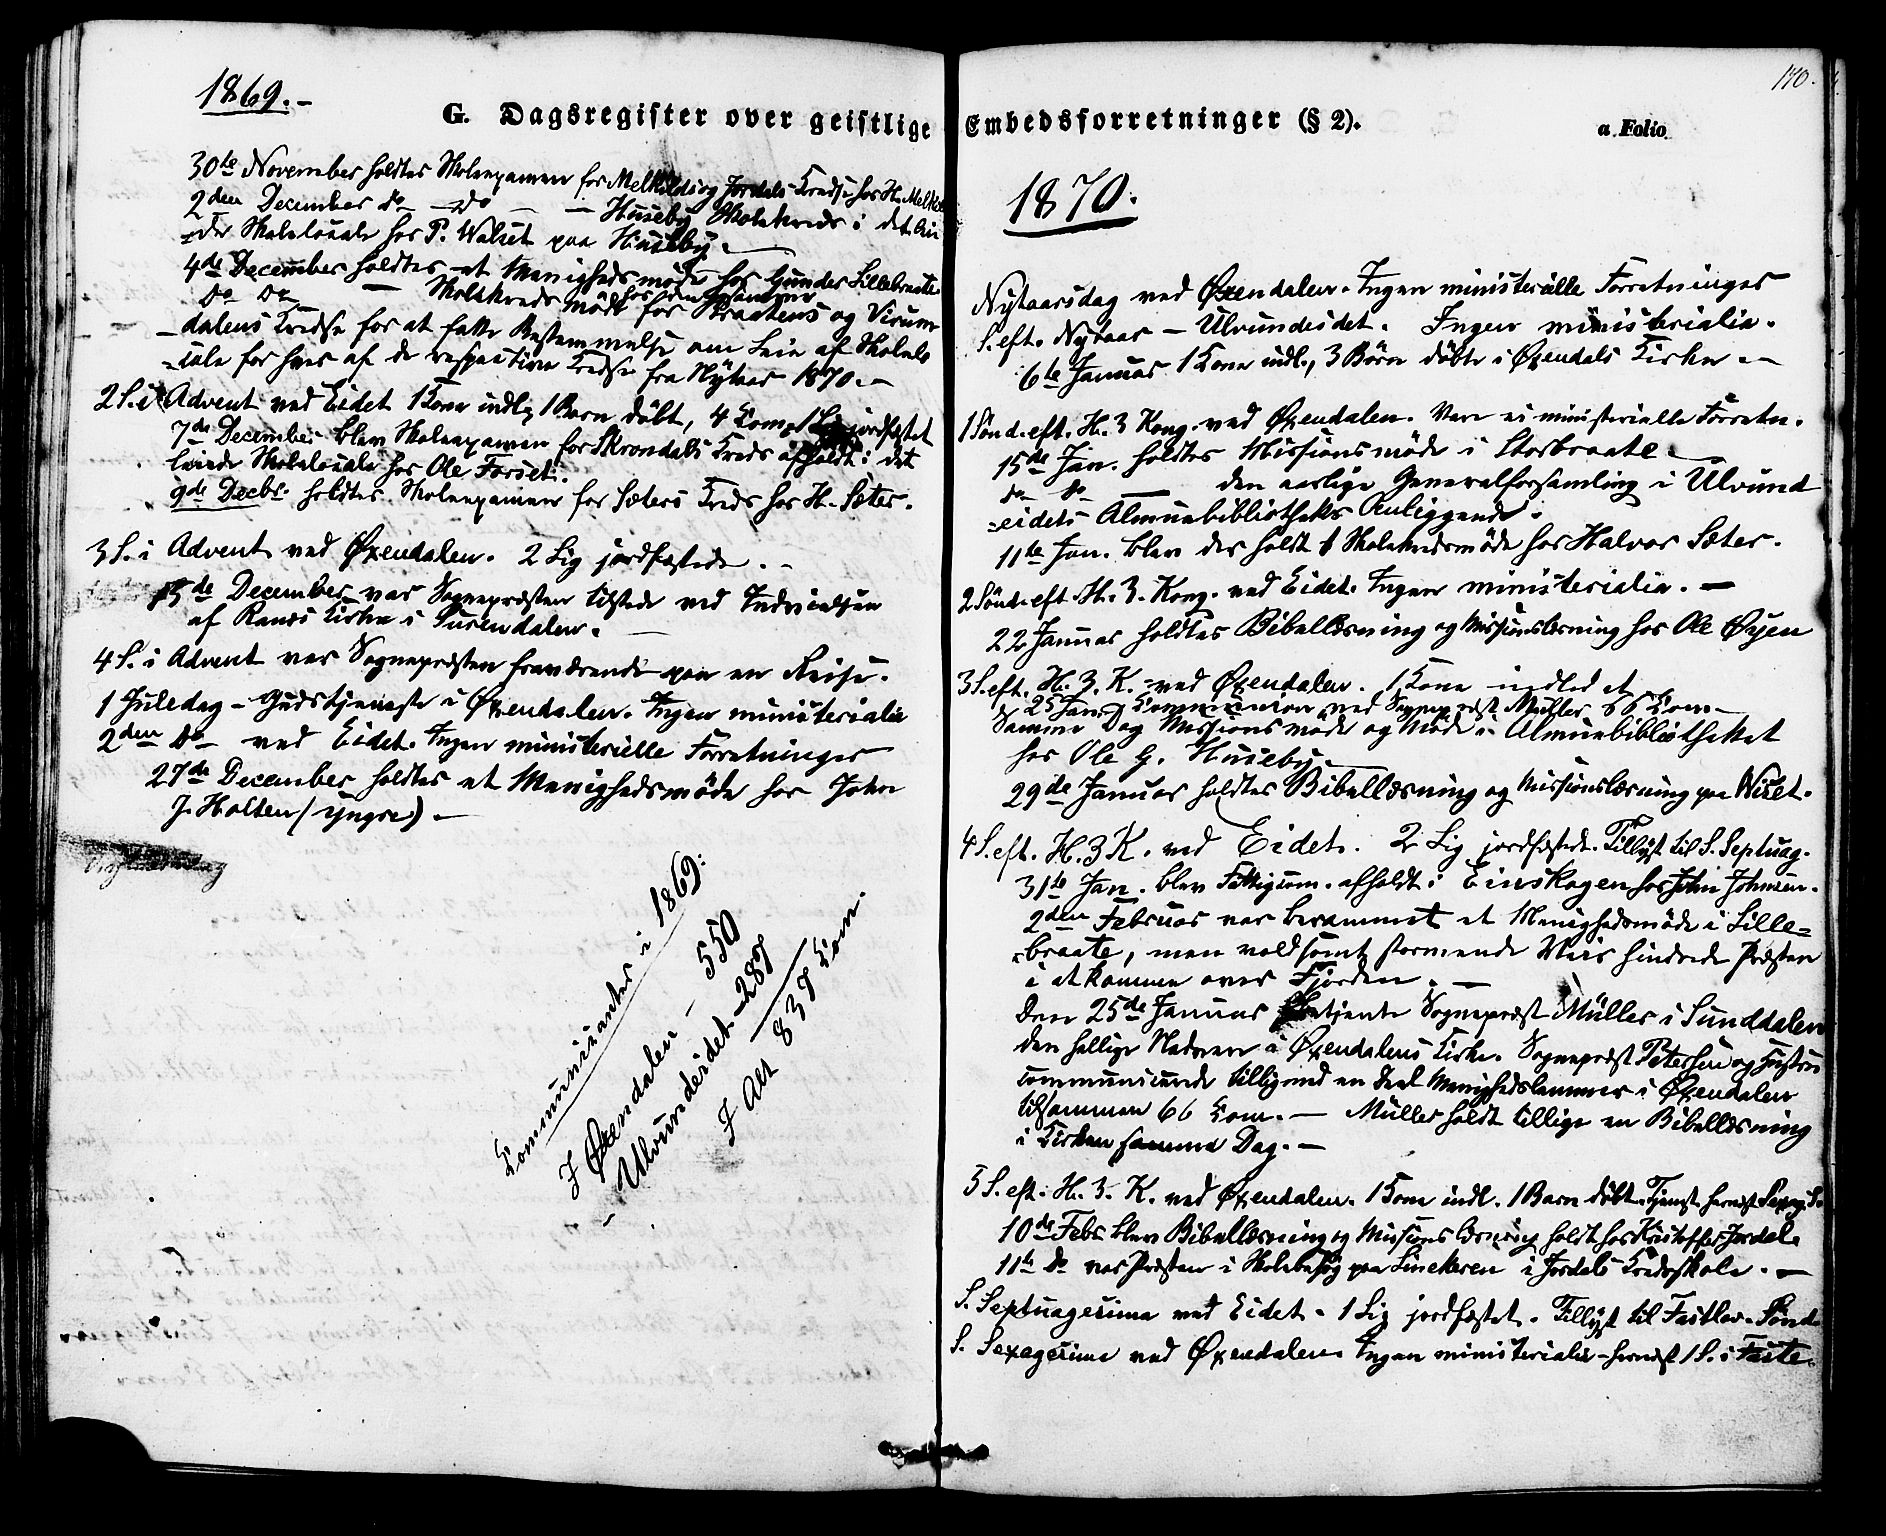 1869.-
G. Dagsregister over geistlige
30te November holdtes Skoleexamen for Melkilds og Jordals Kredse hos H. Melkild
2den December do — do — — Huseby Skolekreds i det
Skolelocale hos P. Walset paa Huseby. —
4de December holdtes et Menighedsmøde hos Gunder Lillebraate
do do — Skolekreds Møde for Braatens og Virum
hos den samme
dalens Kredse for at fatte Bestemmelse om Leie af Skolelo
cale for hver af de respective Kredse fra Nytaar 1870. —
2 S. i Advent ved Eidet 1 Kone indl. 1 Barn døbt, 4 Com. 1 Lig jordfæstet
7de December blev Skoleexamen for Skrondals Kreds afholdt i det
leiede Skolelocale hos Ole Forset.
9de Decbr. holdtes Skoleexamen for Sæters Kreds hos H. Sæter.
3 S. i Advent ved Øxendalen. 2 Lig jordfæstede. -
15de December var Sognepræsten tilstede ved Indvielsen
af Ranes Kirke i Surendalen. —
4 S. i Advent var Sognepræsten fraværende paa en Reise.
1 Juledag - Gudstjeneste i Øxendalen. Ingen ministerialia
2den Do - ved Eidet. Ingen ministerielle Forretninger
27de December holdtes et Menighedsmøde hos John
J. Holten (yngre). —
Communicanter i 1869:
I Øxendalen - 550
- Ulvundeidet - 287
I Alt 837 Com.
170.
Embedsforretninger (§ 2).
a. Folio
1870.
Nytaarsdag ved Øxendalen. Ingen ministerielle Forretninger
S. eft. Nytaar - Ulvundeidet. Ingen ministerialia.
6te Januar 1 Kone indl., 3 Børn døbte i Øxendals Kirke. —
1 Sønd. eft. H. 3 Kong. ved Øxendalen. Vare ei ministerielle Forretn.
15de Jan. holdtes Missionsmøde i Storbraate. —
do do — den aarlige Generalforsamling i Ulvund
=eidets Almuebibliotheks Anliggende.
11te Jan. blev der holdt Skolekredsmøde hos Halvor Sæter.
2 Sønd. eft. H. 3. Kong. ved Eidet. Ingen ministerialia. —
22 Januar holdtes Bibellæsning og Missionslæsning hos Ole Øyen
3 S. eft. H. 3. K. ved Øxendalen. 1 Kone indledet
25 Jan. Communion ved Sognepræst Müller 66 Com —
Samme Dag Missionsmøde og Møde i Almuebibliotheket
hos Ole G. Huseby. —
29de Januar holdtes Bibellæsning og Missionslæsning paa Viset.
4 S. eft. H. 3 K. ved Eidet. 2 Lig jordfæstede. Tillyst til S. Septuag.
31te Jan. blev Fattigcom. afholdt i Einskagen hos John Johnsen.
2den Februar var berammet et Menighedsmøde i Lille=
braate, men voldsomt stormende Veir hindrede Præsten
i at komme over Fjorden. —
Den 25de Januar betjente Sognepræst Müller i Sunddalen
den hellige Nadvere i Øxendalens Kirke. Sognepræst Petersen og Hustru
communicerede tilligemed en Deel Menighedslemmer i Øxendalen
tilsammen 66 Com. — Müller holdt tillige en Bibellæsning
i Kirken samme Dag. —
5 S. eft. H. 3. K. ved Øxendalen. 1 Kone indl. 1 Barn døbt. Tjenest. hernæst Sexag. S.
10de Febr blev Bibellæsning og Missionslæsning holdt hos Kristoffer Jordal.
11te do var Præsten i Skolebesøg paa Linekeren i Jordals Kredsskole. —
S. Septuagesima ved Eidet. 1 Lig jordfæstet. Tillyst til Fastlav. Sønd.
S. Sexagesima ved Øxendalen Ingen ministerialia - hernæst 1 S. i Faste.